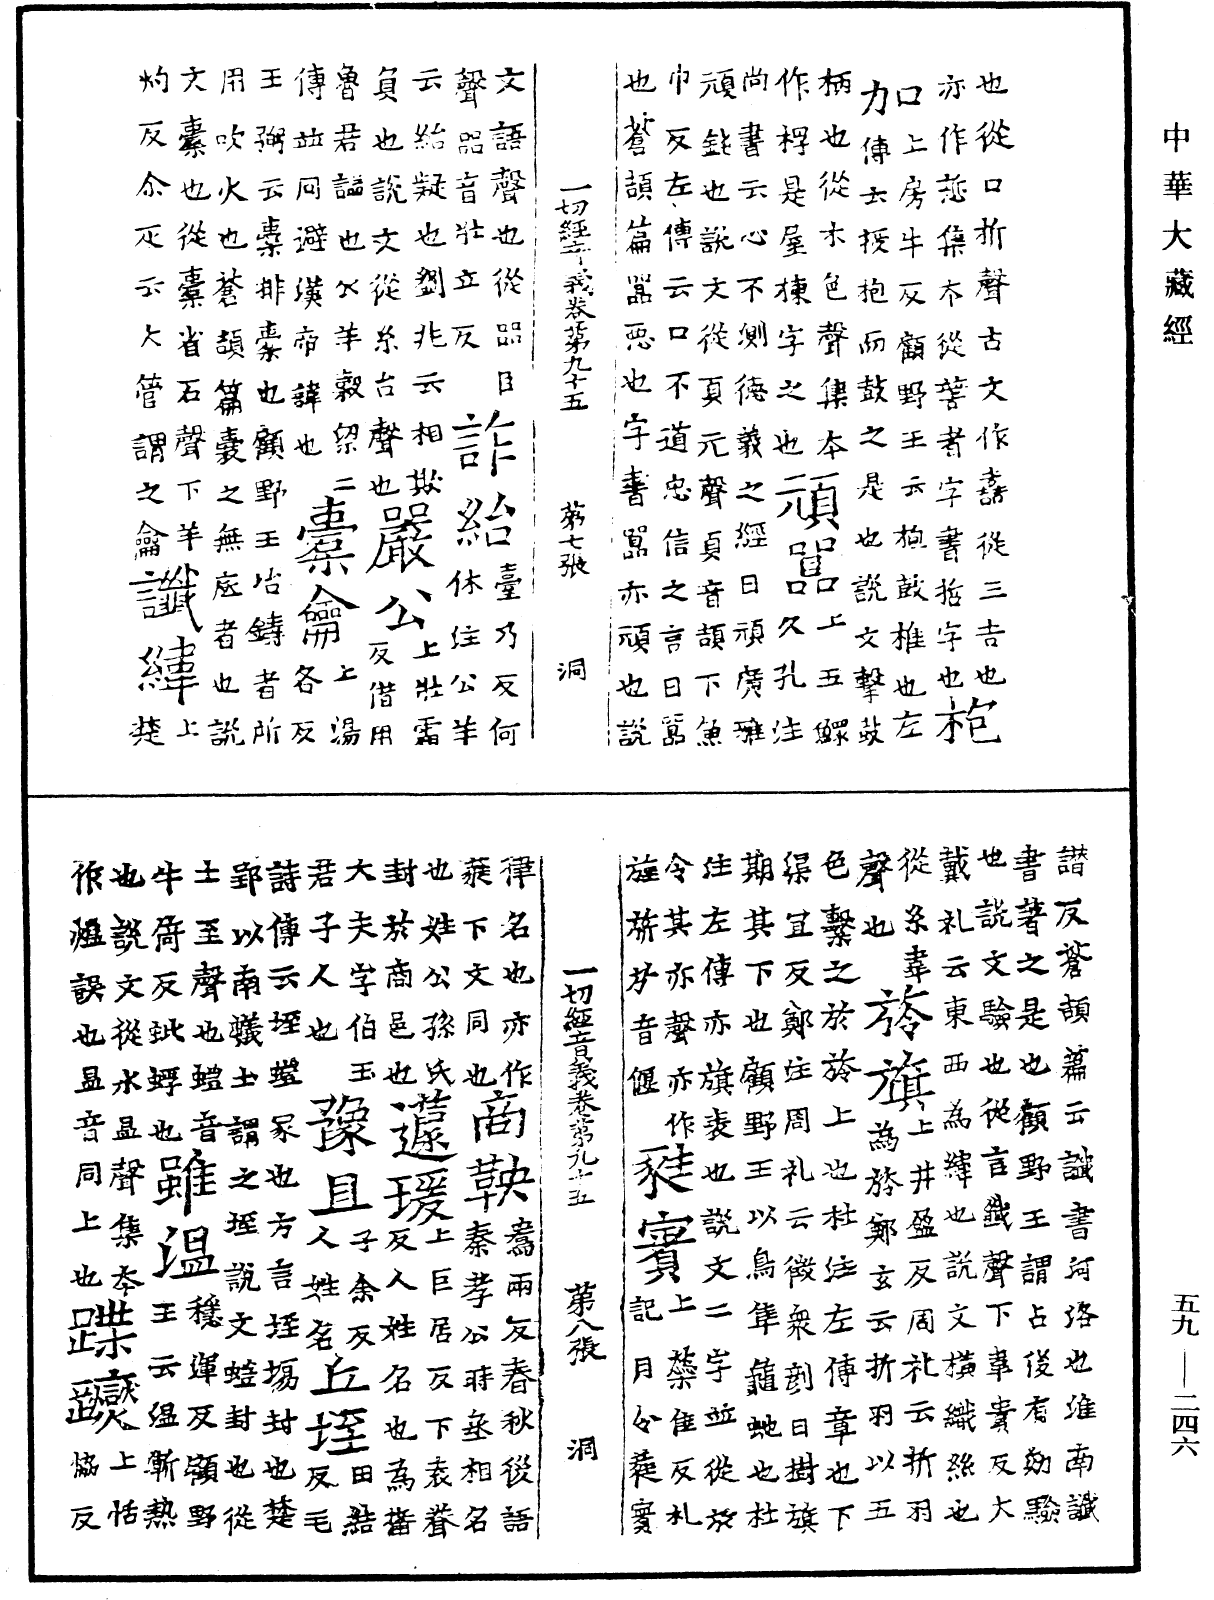 中華大藏經
也從口折聲古文作嚞從三吉也
亦作悊集本從菩者字書哲字也枹
口上房牛反顧野王云枹鼓椎也左
力傳云援枹而鼓之是也說文擊鼓
柄也從木包聲集本頑嚚上五鰥
作桴是屋棟字之也久孔注
尚書云心不測德義之經曰頑廣雅
頑鈍也說文從頁元聲頁音頡下魚
巾反左傳云口不道忠信之言曰嚚
也蒼頡篇嚚惡也字書嚚亦頑也說
一切經音義卷第九十五 第七張 洞
文語聲也從㗊臣詐紿臺乃反何
聲㗊音壯立反休注公羊
云紿疑也劉兆云相欺嚴公上壯霜
負也說文從糸台聲也反借用
魯君謚也公羊穀梁二橐籥上湯
傳並同避漢帝諱也各反
王弼云橐排橐也顧野王冶鑄者所
用吹火也蒼頡篇囊之無底者也說
文橐也從㯻省石聲下羊讖緯上
灼反尒疋云大管謂之籥楚
譖反蒼頡篇云讖書河洛也淮南讖
書著之是也顧野王謂占後有効驗
也說文驗也從言韱聲下韋貴反大
戴礼云東西為緯也說文橫織絲也
從糸韋旍旗上井盈反周礼云折羽
聲也為旍鄭玄云折羽以五
色繫之於旍上也杜注左傳章也下
渠宜反鄭注周礼云徵衆刻日樹旗
期其下也顧野王以鳥隼龜虵也杜
注左傳亦旗表也說文二字並從㫃
令其亦聲亦作蕤賓上蘂隹反礼
旌旂㫃音偃記月令蕤賓
一切經音義卷第九十五 第八張 洞
律名也亦作商鞅鴦兩反春秋後語
蕤下文同也秦孝公時丞相名
也姓公孫氏蘧瑗上巨居反下袁眷
封於商邑也反人姓名也為蕃
大夫字伯玉豫且子余反丘垤田結
君子人也人姓名反毛
詩傳云垤螘冢也方言垤塲封也楚
郢以南蟻土謂之垤說文螘封也從
土至聲也螘音雖溫穩渾反顧野
牛倚反蚍蜉也王云溫漸熱
也說文從水昷聲集本蹀𨇾上恬
作煴誤也昷音同上也恊反
五九——二四六